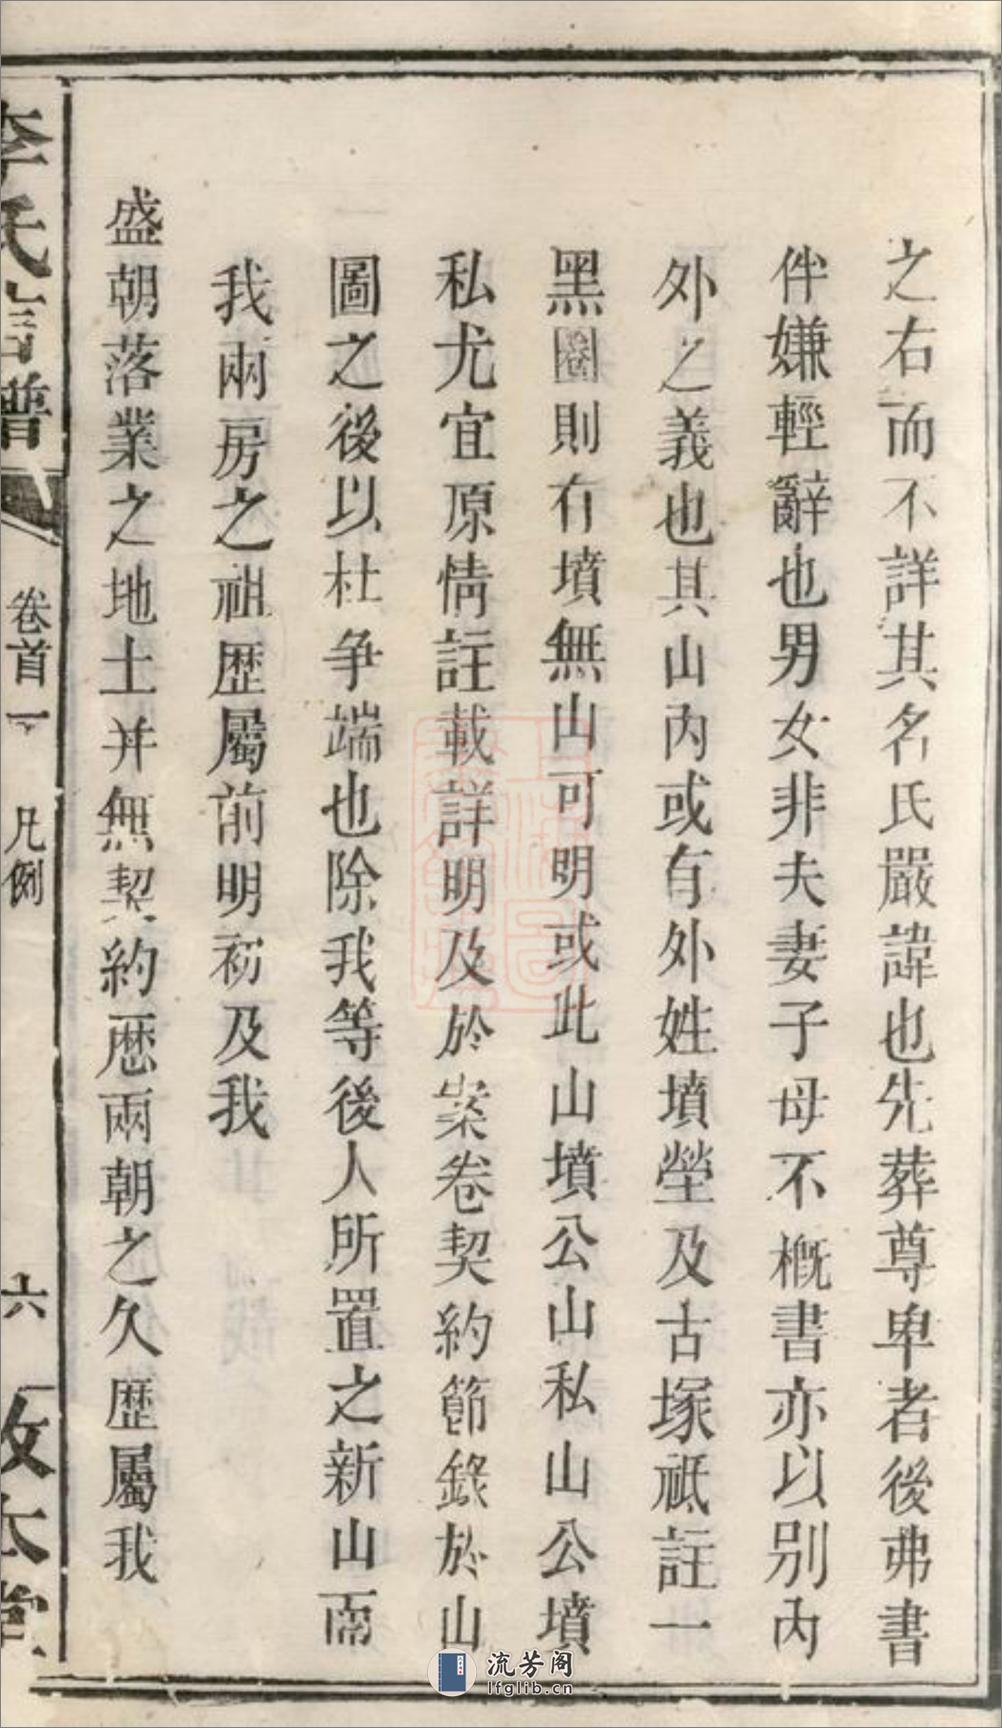 之右而不詳其名氏嚴諱也先葬尊卑者後弗書
伴嫌輕辭也男女非夫妻子母不槪書亦以別內
外之義也其山內或有外姓墳塋及古塚祗註一
黑圈則有墳無山可明或此山墳公山私山公墳
私尤宜原情註載詳明及於案卷契約節錄於山
圖之後以杜争端也除我等後人所置之新山而
我兩房之祖歴屬前明初及我
盛朝落業之地土并無契約歷兩朝之久歴屬我
李氏 譜
卷首一
凡例
六
敦本堂
流芳阁
lfglib.cn